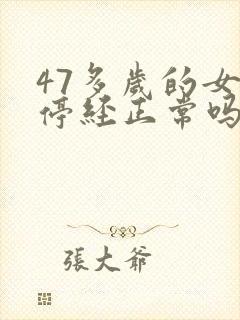 47多歲的女
停經正常嗎
張大爺